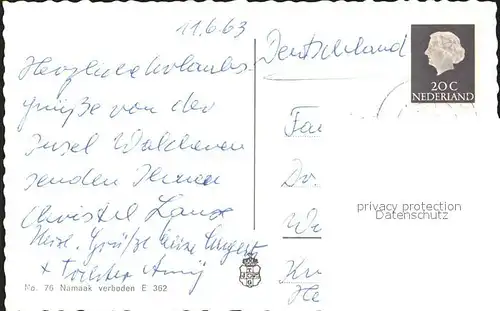 11.6.63
Herzliche Urlaubs-
grüße von der
Insel Walcheren
senden Ihnen
Christel Lange
Herzl. Grüße
+ Tochter
No. 76 Namaak verboden E 362
Deutschland
20 C
NEDERLAND
Fa
Dr.
privacy protection
Datenschutz
We
Kr
He